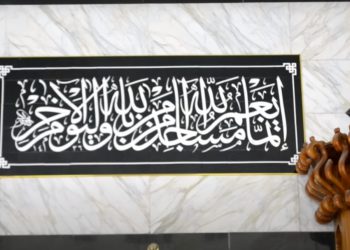 إنما يعمر مساجد الله من آمن بالله واليوم الآخر